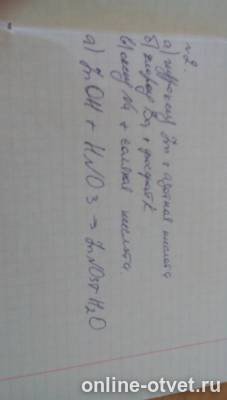 №2.
а) гидроксид Zn + азотная кислота
б) хлорид Ba + фосфат K
в) оксид Na + соляная кислота.
а) ZnOH + HNO3 → ZnNO3+H2O
online-otvet.ru